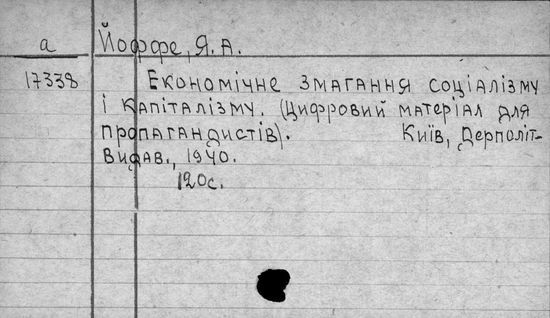 а Йоффе, Я. А.
17338 Економічне змагання соціалізму
і капіталізму. (Цифровий матеріал для
пропагандистів). Київ, Держполіт-
видав., 1940.
120с.